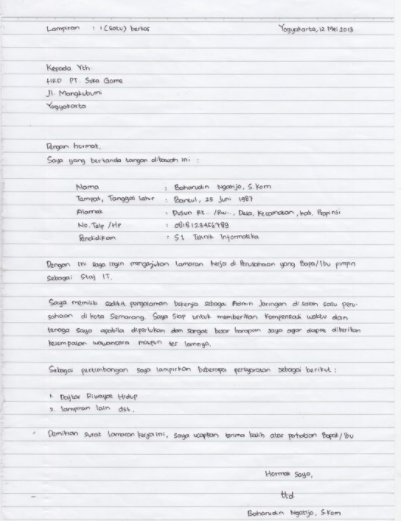 Lampiran : 1 (Satu) berkas Yogyakarta, 12 Mei 2013
Kepada Yth
HRD PT. Suka Game
Jl. Mangkubumi
Yogyakarta
Dengan hormat,
Saya yang bertanda tangan dibawah ini :
Nama : Baharudin Ngatijo, S.Kom
Tempat, Tanggal Lahir : Bantul, 25 Juni 1987
Alamat : Dusun Rt.. /Rw.., Desa, Kecamatan, Kab, Propinsi
No. Telp /Hp : 0818123456789
Pendidikan : S1 Teknik Informatika
Dengan ini saya ingin mengajukan lamaran kerja di Perusahaan yang Bapa/Ibu pimpin
sebagai Staf IT.
Saya memiliki sedikit pengalaman bekerja sebagai Admin Jaringan di salah satu peru-
sahaan di kota Semarang. Saya siap untuk memberikan Kompensasi waktu dan
tenaga saya apabila diperlukan dan sangat besar harapan saya agar dapat diberikan
kesempatan wawancara maupun tes lainnya.
Sebagai pertimbangan saya lampirkan beberapa persyaratan sebagai berikut :
1. Daftar Riwayat Hidup
2. lampiran lain dst.
Demikian surat lamaran kerja ini, saya ucapkan terima kasih atas perhatian Bapak/Ibu
Hormat Saya,
ttd
Baharudin Ngatijo, S.Kom